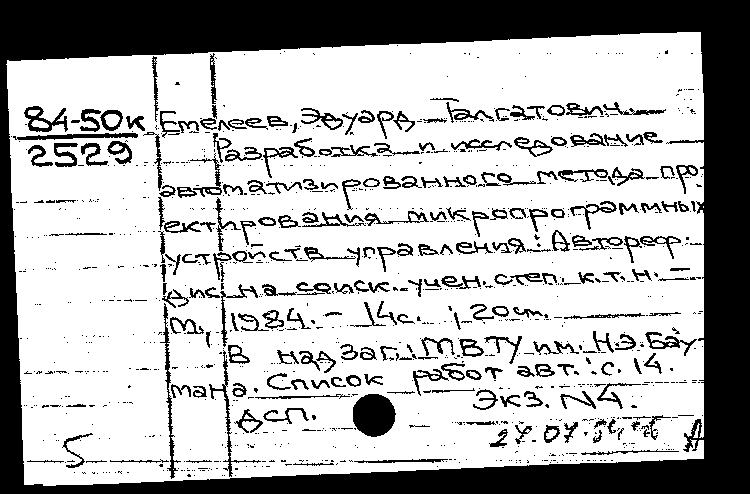 84-50к Етелеев, Эдуард Талгатович.
2529 Разработка и исследование
автоматизированного метода про-
ектирования микропрограммных
устройств управления: Автореф.
дис. на соиск. учен. степ. к.т.н. –
М., 1984. – 14с. ; 20см.
В надзаг.: МВТУ им. Н.Э. Бау-
мана. Список работ авт.: с. 14.
ДСП. Экз. N4.
5 27.07.84 А